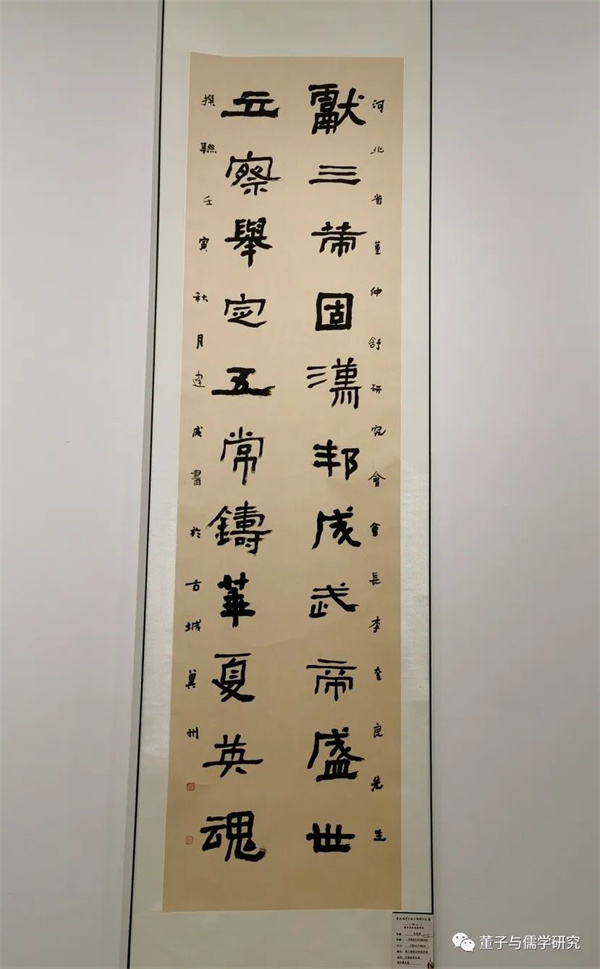 河北省董仲舒研究會會長李奎良先生
獻三策固漢邦成武帝盛世
立察舉定五常鑄華夏英魂
撰聯壬寅秋月建成書於古城冀州
董子与儒学研究